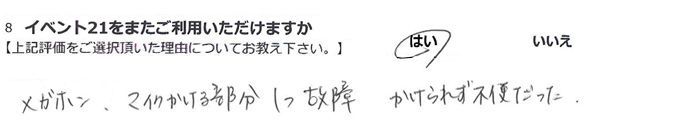 8 イベント21をまたご利用いただけますか はい いいえ
【上記評価をご選択頂いた理由についてお教え下さい。】
メガホン、マイクかける部分1つ故障 かけられず不便だった.